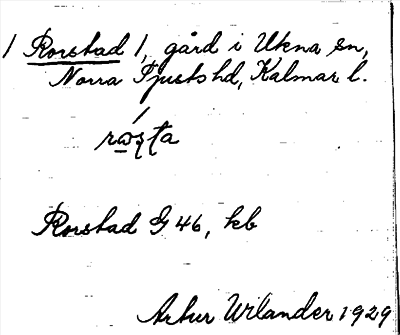 1 Rorstad 1, gård i Ukna sn,
Norra Tjusts hd, Kalmar l.
Rorstad G 46, kb
Arthur Wilander 1929